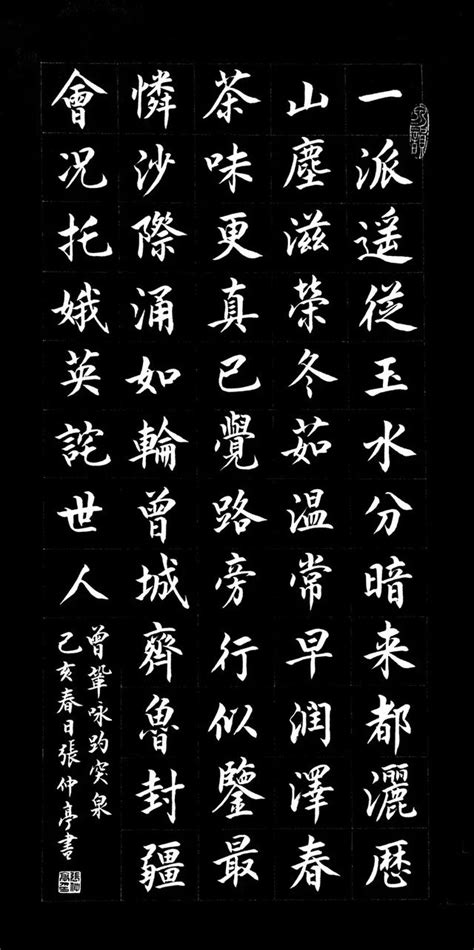 一派遥從玉水分暗来都灑歷
山塵滋榮冬茹温常早潤澤春
茶味更真已覺路旁行似鑒最
憐沙際涌如輪曾城齊魯封疆
會况托娥英詫世人
曾鞏咏趵突泉
己亥春日張仲亭書